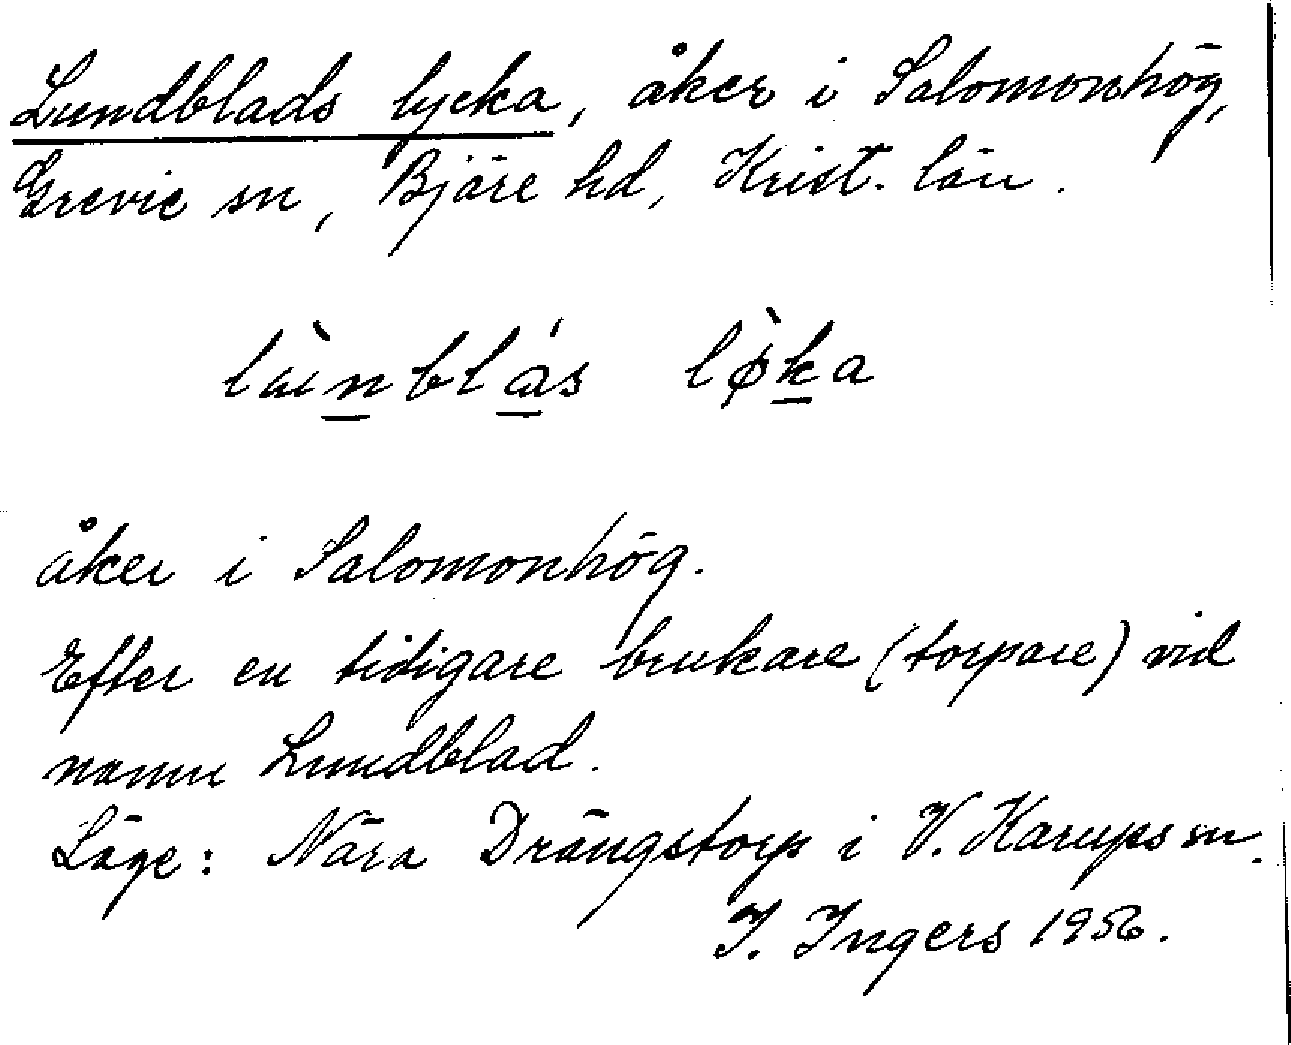 Lundblads lycka, åker i Salomonhög,
Grevie sn, Bjäre hd, Krist. län.
lùnblás lø̀ka
åker i Salomonhög.
Efter en tidigare brukare (torpare) vid
namn Lundblad.
Läge: Nära Drängstorp i V. Karups sn.
I. Ingers 1956.